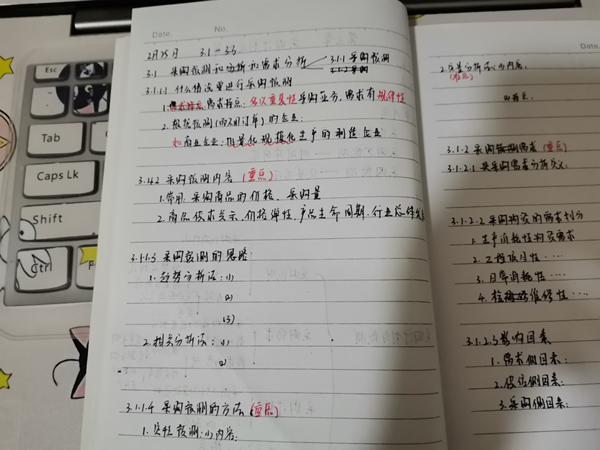 Date.
No.
2月25日 3.1-3.3
3.1 采购预测和分析和需求分析 3.1.1 采购预测
3.1.1.1 什么情况要进行采购预测
1. 需求特点:多以重复性采购业务,需求有规律性
2. 根据预测(而不用订单)的企业
如商业企业、批量化规模化生产的制造企业
3.1.1.2 采购预测内容 (重点)
1. 常用:采购商品的价格、采购量
2. 商品供求关系、价格弹性、产品生命周期、行业总体
3.1.1.3 采购预测的思路:
1. 趋势分析法:(1)
(2)
(3)
2. 相关分析法:(1)
(2)
3.1.1.4 采购预测的方法 (重点)
1. 定性预测:(1)内容:
Date.
(重点)
3.1.2 采购需求 (重点)
3.1.2.1 采购需求分析定义:
3.1.2.2 采购物资的需求划分
1. 生产消耗性物资需求
2. 工程项目性....
3. 日常消耗性....
4. 维修性....
3.1.2.3 影响因素
1. 需求侧因素:
2. 供给侧因素:
3. 采购侧因素:
Esc
Tab
Caps Lk
Shift
Ctrl
F